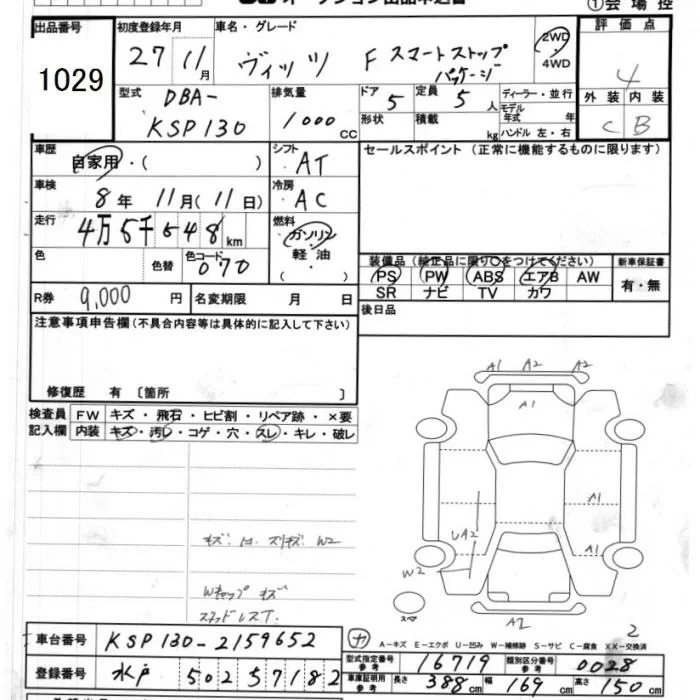 オークション出品申込書 ①会場控
出品番号 初度登録年月 車名・グレード 評価点
1029 27 11月 ヴィッツ F スマートストップ パッケージ 2WD・4WD 4
型式 DBA-KSP130 排気量 1000 CC ドア 5 定員 5 人 ディーラー・並行 外装 内装
形状 積載 kg モデル年式 年 ハンドル 左・右 C B
車歴 自家用・( ) シフト AT セールスポイント (正常に機能するものに限ります)
車検 8年 11月(11日) 冷房 AC
走行 4万5千548km 燃料 ガソリン・軽油・( )
色 色替 色コード 070 装備品 (純正品に限り○をつけてください) 新車保証書
PS PW ABS エアB AW 有・無
SR ナビ TV カワ
R券 9,000 円 名変期限 月 日 後日品
注意事項申告欄(不具合内容等は具体的に記入して下さい)
修復歴 有 〔箇所 〕
検査員記入欄 FW キズ・飛石・ヒビ割・リペア跡・×要
内装 キズ・汚レ・コゲ・穴・スレ・キレ・破レ
A1 A2 A2
A1
A1
UA2
A1
W2
W2
Wキャップ キズ
スペア
スタッドレスT.
A2
2
車台番号 KSP130-2159652
A-キズ E-エクボ U-凹み W-補修跡 S-サビ C-腐食 XX-交換済
登録番号 水戸 502 57182
型式指定番号 参考 16719 類別区分番号 参考 0028
車庫証明用 参考 長さ 388cm 幅 169cm 高さ 150cm